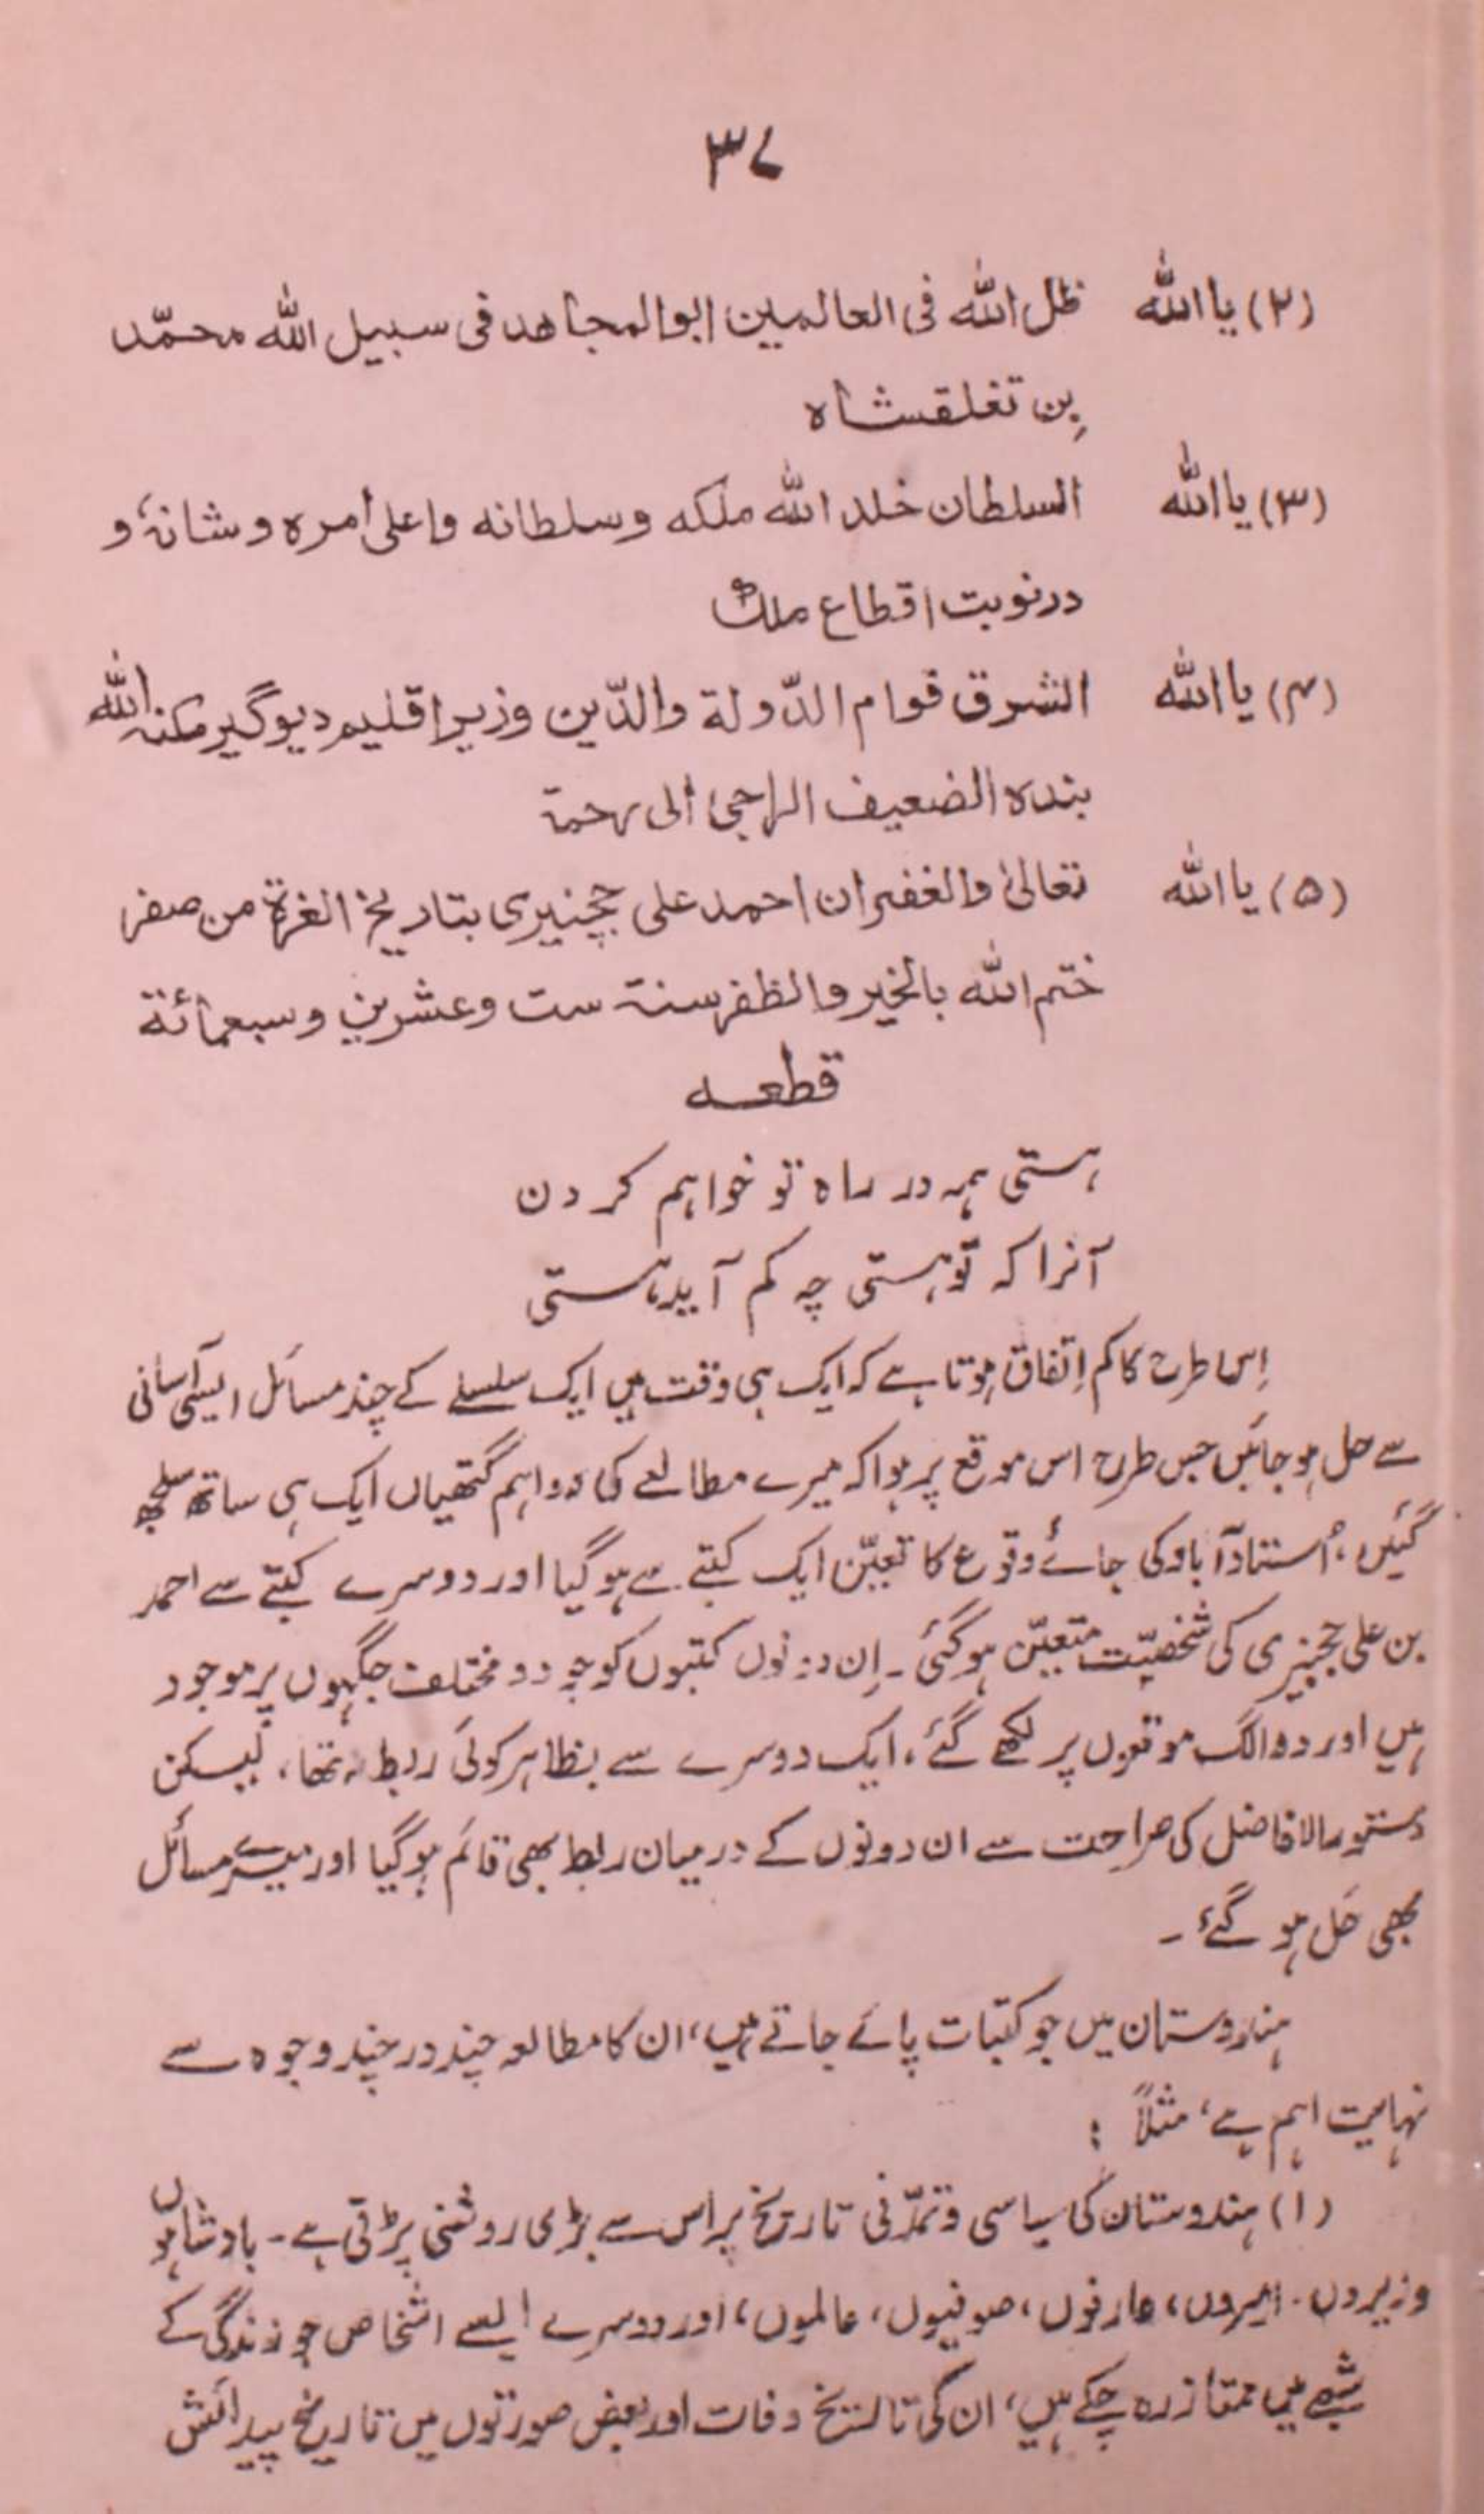 ۳۷
(۲) یا اللہ ظل اللہ فی العالمین ابوالمجاھد فی سبیل اللہ محمّد
بن تغلقشاہ
(۳) یا اللہ السلطان خلد اللہ ملکہ وسلطانہ واعلی أمرہ وشانہٗ و
درنوبت اقطاع ملک
(۴) یا اللہ الشرق قوام الدّولة والدّین وزیر اقلیم دیوگیر مکنہ اللہ
بندہ الضعیف الراجی الی رحمة
(۵) یا اللہ تعالیٰ والغفران احمد علی ججنیری بتاریخ الغرة من صفر
ختم اللہ بالخیر والظفر سنة ست وعشرین وسبعمائة
قطعہ
ہستی ہمہ در راہ تو خواہم کردن
آنرا کہ تو ہستی چہ کم آید ہستی
اِس طرح کا کم اِتفاق ہوتا ہے کہ ایک ہی وقت میں ایک سلسلے کے چند مسائل ایسی آسانی
سے حل ہو جائیں جس طرح اس موقع پر ہوا کہ میرے مطالعے کی دو اہم گتھیاں ایک ہی ساتھ سلجھ
گئیں، اُستادآباد کی جائے وقوع کا تعیّن ایک کتبے سے ہو گیا اور دوسرے کتبے سے احمد
بن علی ججنیری کی شخصیّت متعیّن ہو گئی ۔ اِن دونوں کتبوں کو جو دو مختلف جگہوں پر موجود
ہیں اور دو الگ موقعوں پر لکھے گئے، ایک دوسرے سے بظاہر کوئی ربط نہ تھا، لیکن
دستورالافاضل کی صراحت سے ان دونوں کے درمیان ربط بھی قائم ہو گیا اور میرے مسائل
بھی حَل ہو گئے ۔
ہندوستان میں جو کتبات پائے جاتے ہیں، ان کا مطالعہ چند در چند وجوہ سے
نہایت اہم ہے، مثلاً :
(۱) ہندوستان کی سیاسی و تمدّنی تاریخ پر اس سے بڑی روشنی پڑتی ہے ۔ بادشاہوں
وزیروں، امیروں، عارفوں، صوفیوں، عالموں، اور دوسرے ایسے اشخاص جو زندگی کے
شعبے میں ممتاز رہ چکے ہیں، ان کی تاریخ وفات اور بعض صورتوں میں تاریخ پیدائش